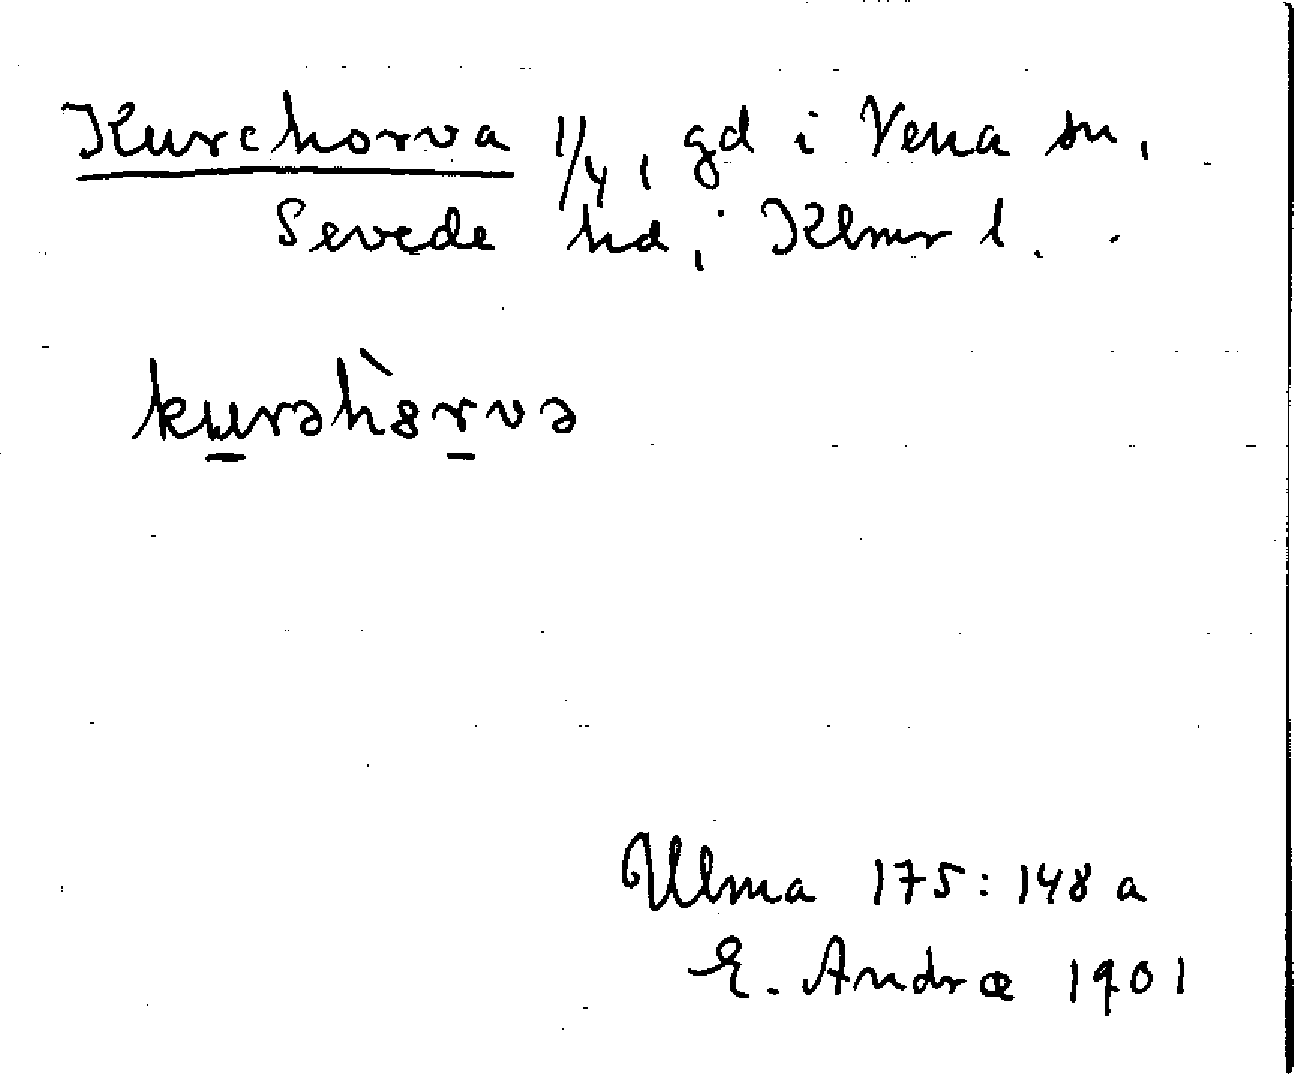 Kurehorva 1/4, gd i Vena sn,
Sevede hd, Klmr l.
kurəh̀8rvə
Ulma 175:148 a
E. Andræ 1901